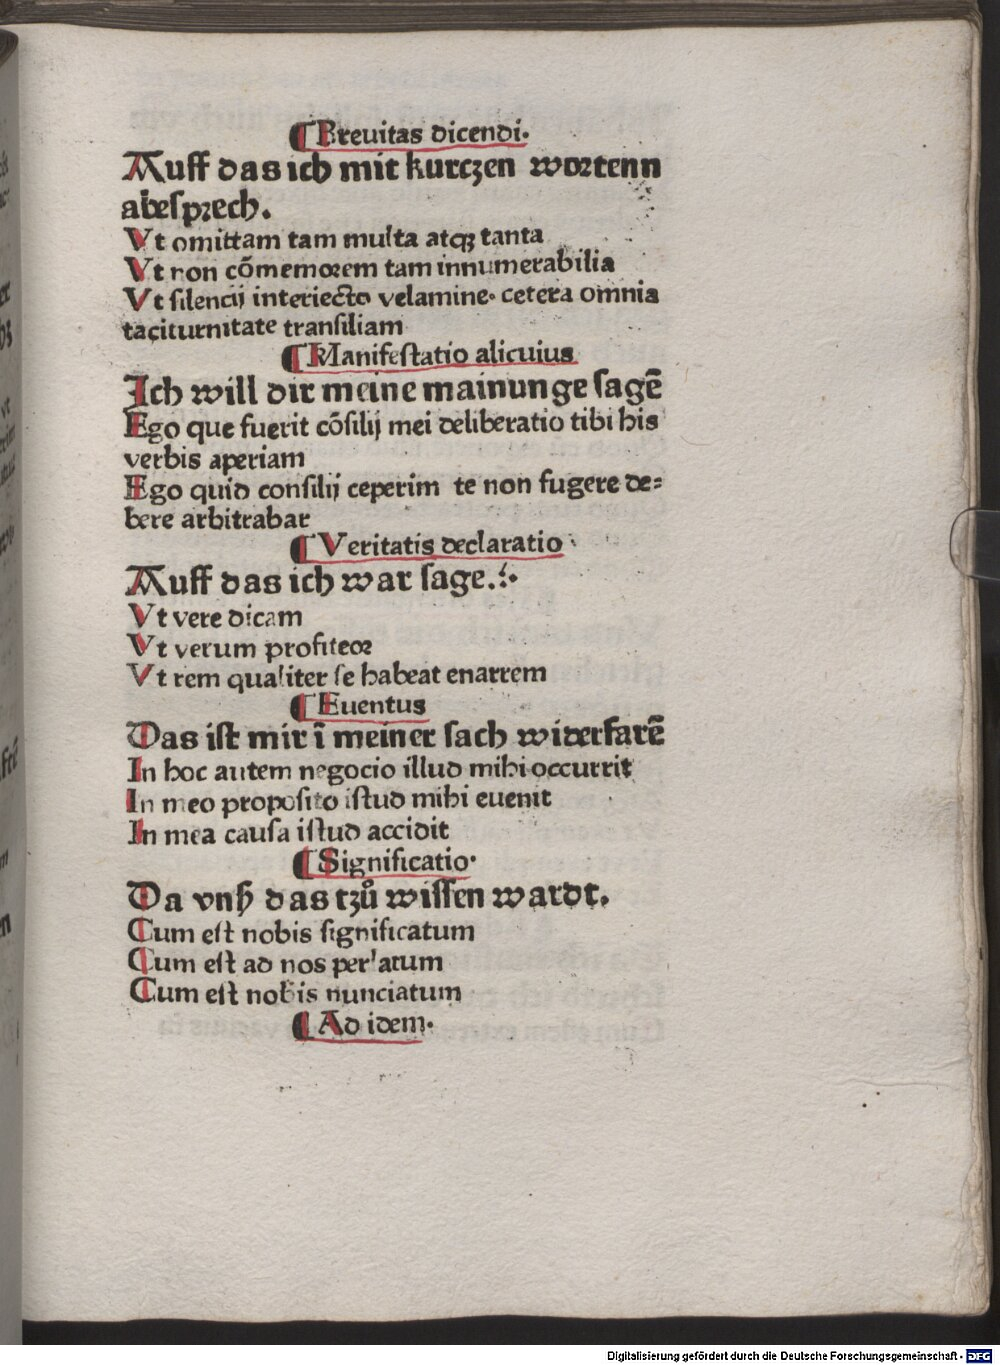 ¶ Breuitas dicendi.
Auff das ich mit kurczen wortenn
abesprech.
Vt omittam tam multa atqꝫ tanta
Vt non cōmemorem tam innumerabilia
Vt silencij interiecto velamine. cetera omnia
taciturnitate transiliam
¶ Manifestatio alicuius
Ich will dir meine mainunge sagē
Ego que fuerit cōsilij mei deliberatio tibi his
verbis aperiam
Ego quid consilij ceperim te non fugere de=
bere arbitrabar
¶ Veritatis declaratio
Auff das ich war sage.
Vt vere dicam
Vt verum profiteor
Vt rem qualiter se habeat enarrem
¶ Euentus
Das ist mir ī meiner sach widerfarē
In hoc autem negocio illud mihi occurrit
In meo proposito istud mihi euenit
In mea causa istud accidit
¶ Significatio.
Da vnß das tzů wissen wardt.
Cum est nobis significatum
Cum est ad nos perlatum
Cum est nobis nunciatum
¶ Ad idem.
Digitalisierung gefördert durch die Deutsche Forschungsgemeinschaft - DFG